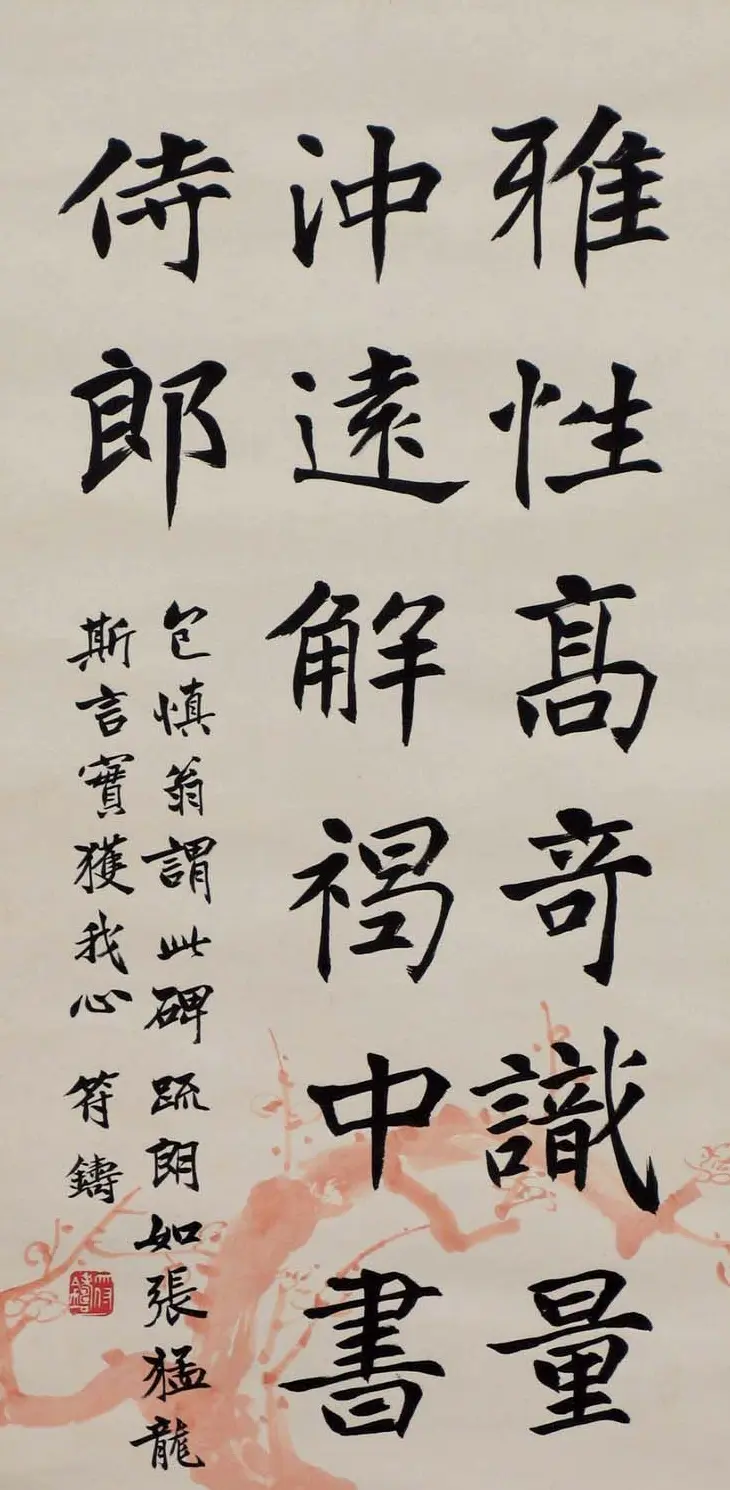 雅性高奇識量
沖遠解褐中書
侍郎
包慎翁謂此碑疏朗如張猛龍
斯言實獲我心 符鑄
符鑄